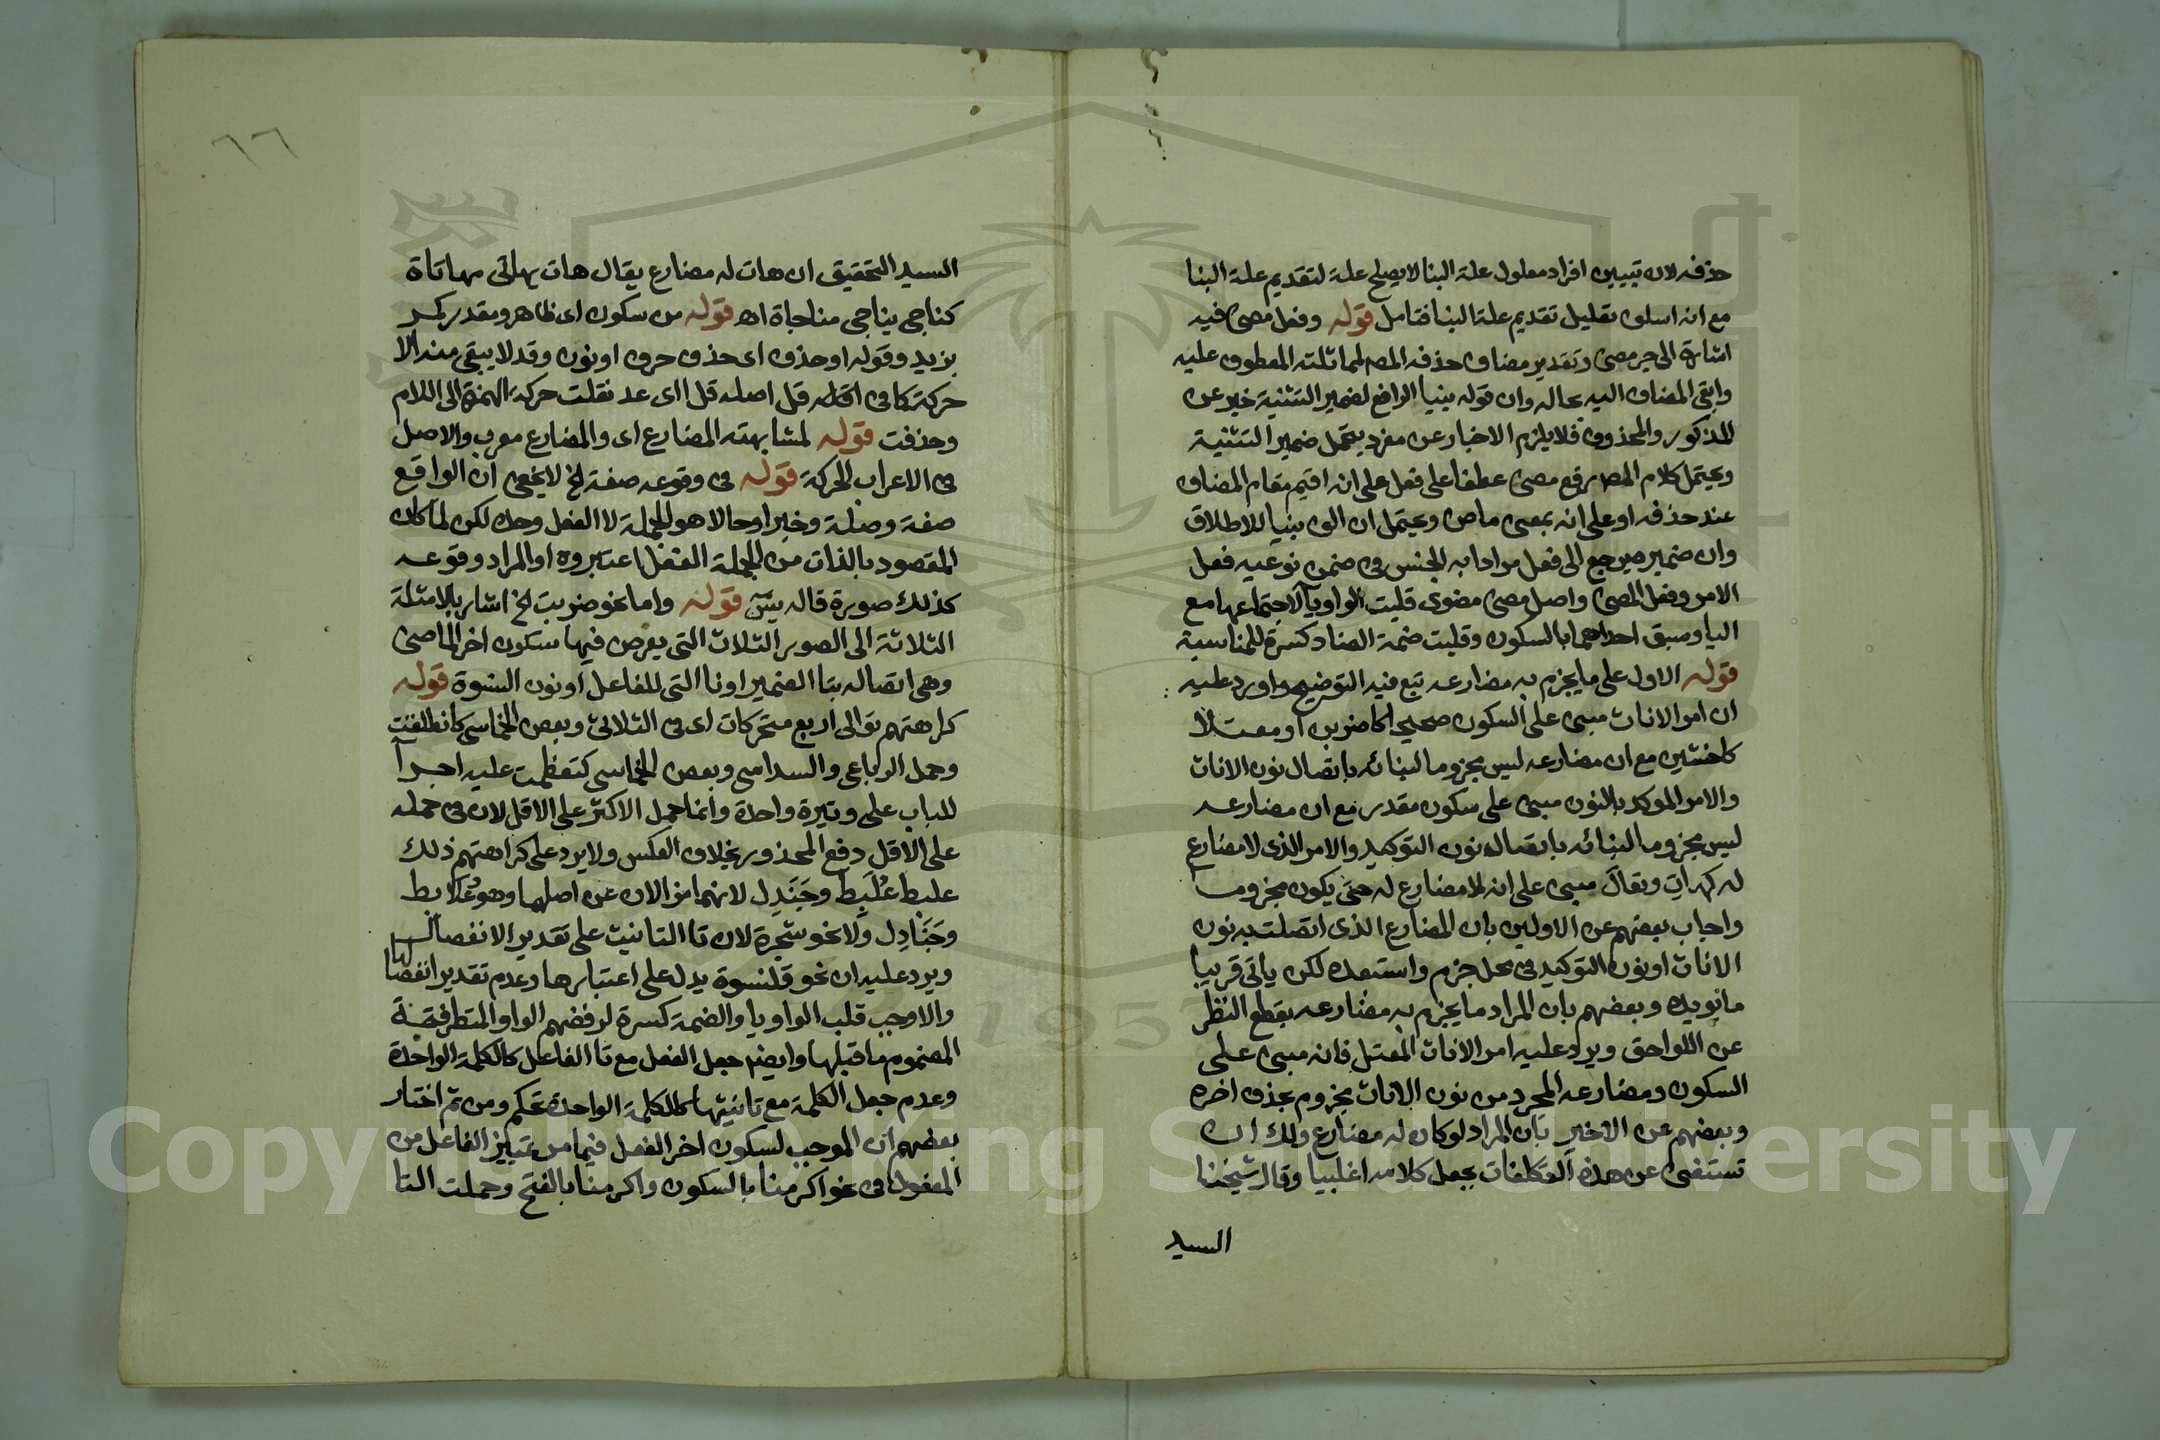 حذفه لان تبيين افراد معلول علة البنا لا يصلح علة لتقديم علة البنا
مع انه اسلوب تقليل تقديم علة البنا فتامل قوله وفعل مضى فيه
اشارة الى جر مضى وتقدير مضاف حذفه المص لمماثلته المعطوف عليه
وابقى المضاف اليه بحاله وان قوله بنيا الرافع لضمير التثنية خبر عن
المذكور والمحذوف فلا يلزم الاخبار عن مفرد يتحمل ضمير التثنية
ويحتمل كلام المص رفع مضى عطفا على فعل على انه اقيم مقام المضاف
عند حذفه او على انه بمعنى ماض ويحتمل ان الف بنيا للاطلاق
وان ضميره يرجع الى فعل مرادا به الجنس في ضمن نوعيه فعل
الامر وفعل المضي واصل مضى مضوى قلبت الواو يآ لاجتماعها مع
اليا وسبق احداهما بالسكون وقلبت ضمة الضاد كسرة للمناسبة
قوله الاول على ما يجزم به مضارعه تبع فيه التوضيح واورد عليه
ان امر الاناث مبنى على السكون صحيحا كاضربن او معتلا
كاخشين مع ان مضارعه ليس مجزوما لبنائه باتصال نون الاناث
والامر الموكد بالنون مبنى على سكون مقدر مع ان مضارعه
ليس مجزوما لبنائه باتصاله نون التوكيد والامر الذى لا مضارع
له كهات وتعال مبنى على انه لا مضارع له حتى يكون مجزوما
واجاب بعضهم عن الاولين بان المضارع الذى اتصلت به نون
الاناث او نون التوكيد في محل جزم واستبعده لكن ياتى قريبا
ما نويده وبعضهم بان المراد ما يجزم به مضارعه بقطع النظر
عن اللواحق ويرد عليه امر الاناث المعتل فانه مبنى على
السكون ومضارعه المجرد من نون الاناث مجزوم بحذف اخره
وبعضهم عن الاخير بان المراد لو كان له مضارع ولك ان
تستغنى عن هذه التكلفات بجعل كلامه اغلبيا وقال شيخنا
السيد
٦٦
السيد التحقيق ان هات له مضارع يقال هات يهاتى مهاتاة
كناجى يناجى مناجاة اه قوله من سكون اى ظاهر ومقدر كمر
بزيد وقوله او حذف اى حذف حرف او نون وقد لا يبقى منه الا
حركة كما في قل اصله قل ااى عد نقلت حركة الهمزة الى اللام
وحذفت قوله لمشابهته المضارع اى والمضارع معرب والاصل
في الاعراب الحركة قوله في وقوعه صفة لخ لا يخفى ان الواقع
صفة وصلة وخبرا وحالا هو الجملة لا الفعل وحده لكن لما كان
المقصود بالذات من الجملة الفعل اعتبروه او المراد وقوعه
كذلك صورة قاله يس قوله واما نحو ضربت لخ اشار بالامثلة
الثلاثة الى الصور الثلاث التى يعرض فيها سكون اخر الماضى
وهى اتصاله بتا الضمير او نا التى للفاعل او نون النسوة قوله
كراهتهم توالى اربع متحركات اى في الثلاثى وبعض الخماسى كانطلقت
وحمل الرباعى والسداسى وبعض الخماسى كتعظمت عليه اجرآ
للباب على وتيرة واحدة وانما حمل الاكثر على الاقل لان في حمله
على الاقل دفع المحذور بخلاف العكس ولا يرد على كراهتهم ذلك
علبط عُلَبِط وجَنَدِل لانهما مزالان عن اصلهما وهو عُلابط
وجَنَادِل ولا نحو شجرة لان تا التانيث على تقدير الانفصال
ويرد عليه ان نحو قلنسوة يدل على اعتبارها وعدم تقدير انفصالها
والا وجب قلب الواو يا والضمة كسرة لرفضهم الواو المتطرفة
المضموم ما قبلها وايضا جعل الفعل مع تا الفاعل كالكلمة الواحدة
وعدم جعل الكلمة مع تانيثها كالكلمة الواحدة تحكم ومن ثم اختار
بعضهم ان الموجب لسكون اخر الفعل فيما مر تمييز الفاعل من
المفعول في نحو اكرمنا بالسكون واكرمنا بالفتح وحملت التا
1957
Copyright © King Saud University